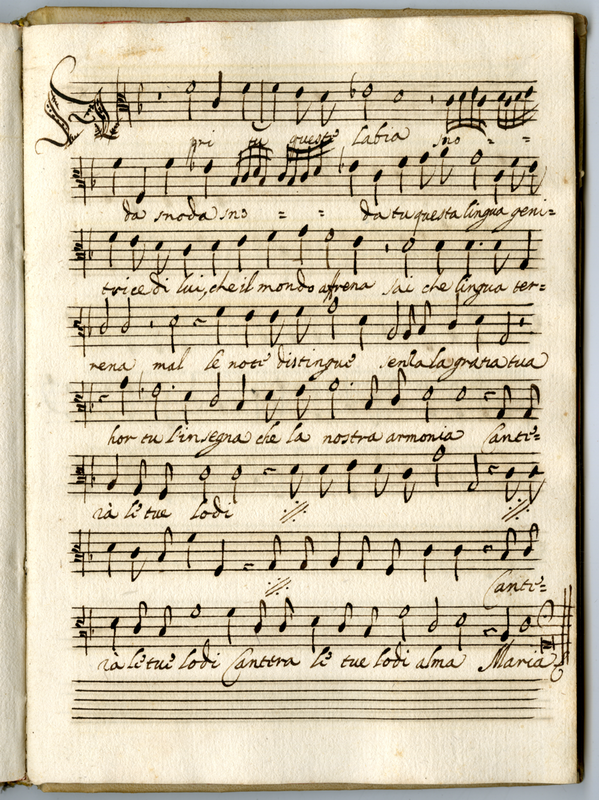 Apri tu queste labia sno = =
da snoda sno = = da tu questa lingua geni=
trice di lui, che il mondo affrena sai che lingua ter=
rena mal le note distingue senza la gratia tua
hor tu l'insegna che la nostra armonia Cante=
rà le tue lodi
Cante=
rà le tue lodi Cantera le tue lodi alma Maria